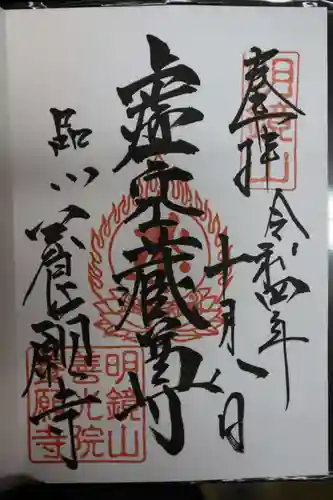 奉拝
明鏡山
令和四年
十月八日
虚空蔵尊
品川 養願寺
明鏡山
善光院
養願寺